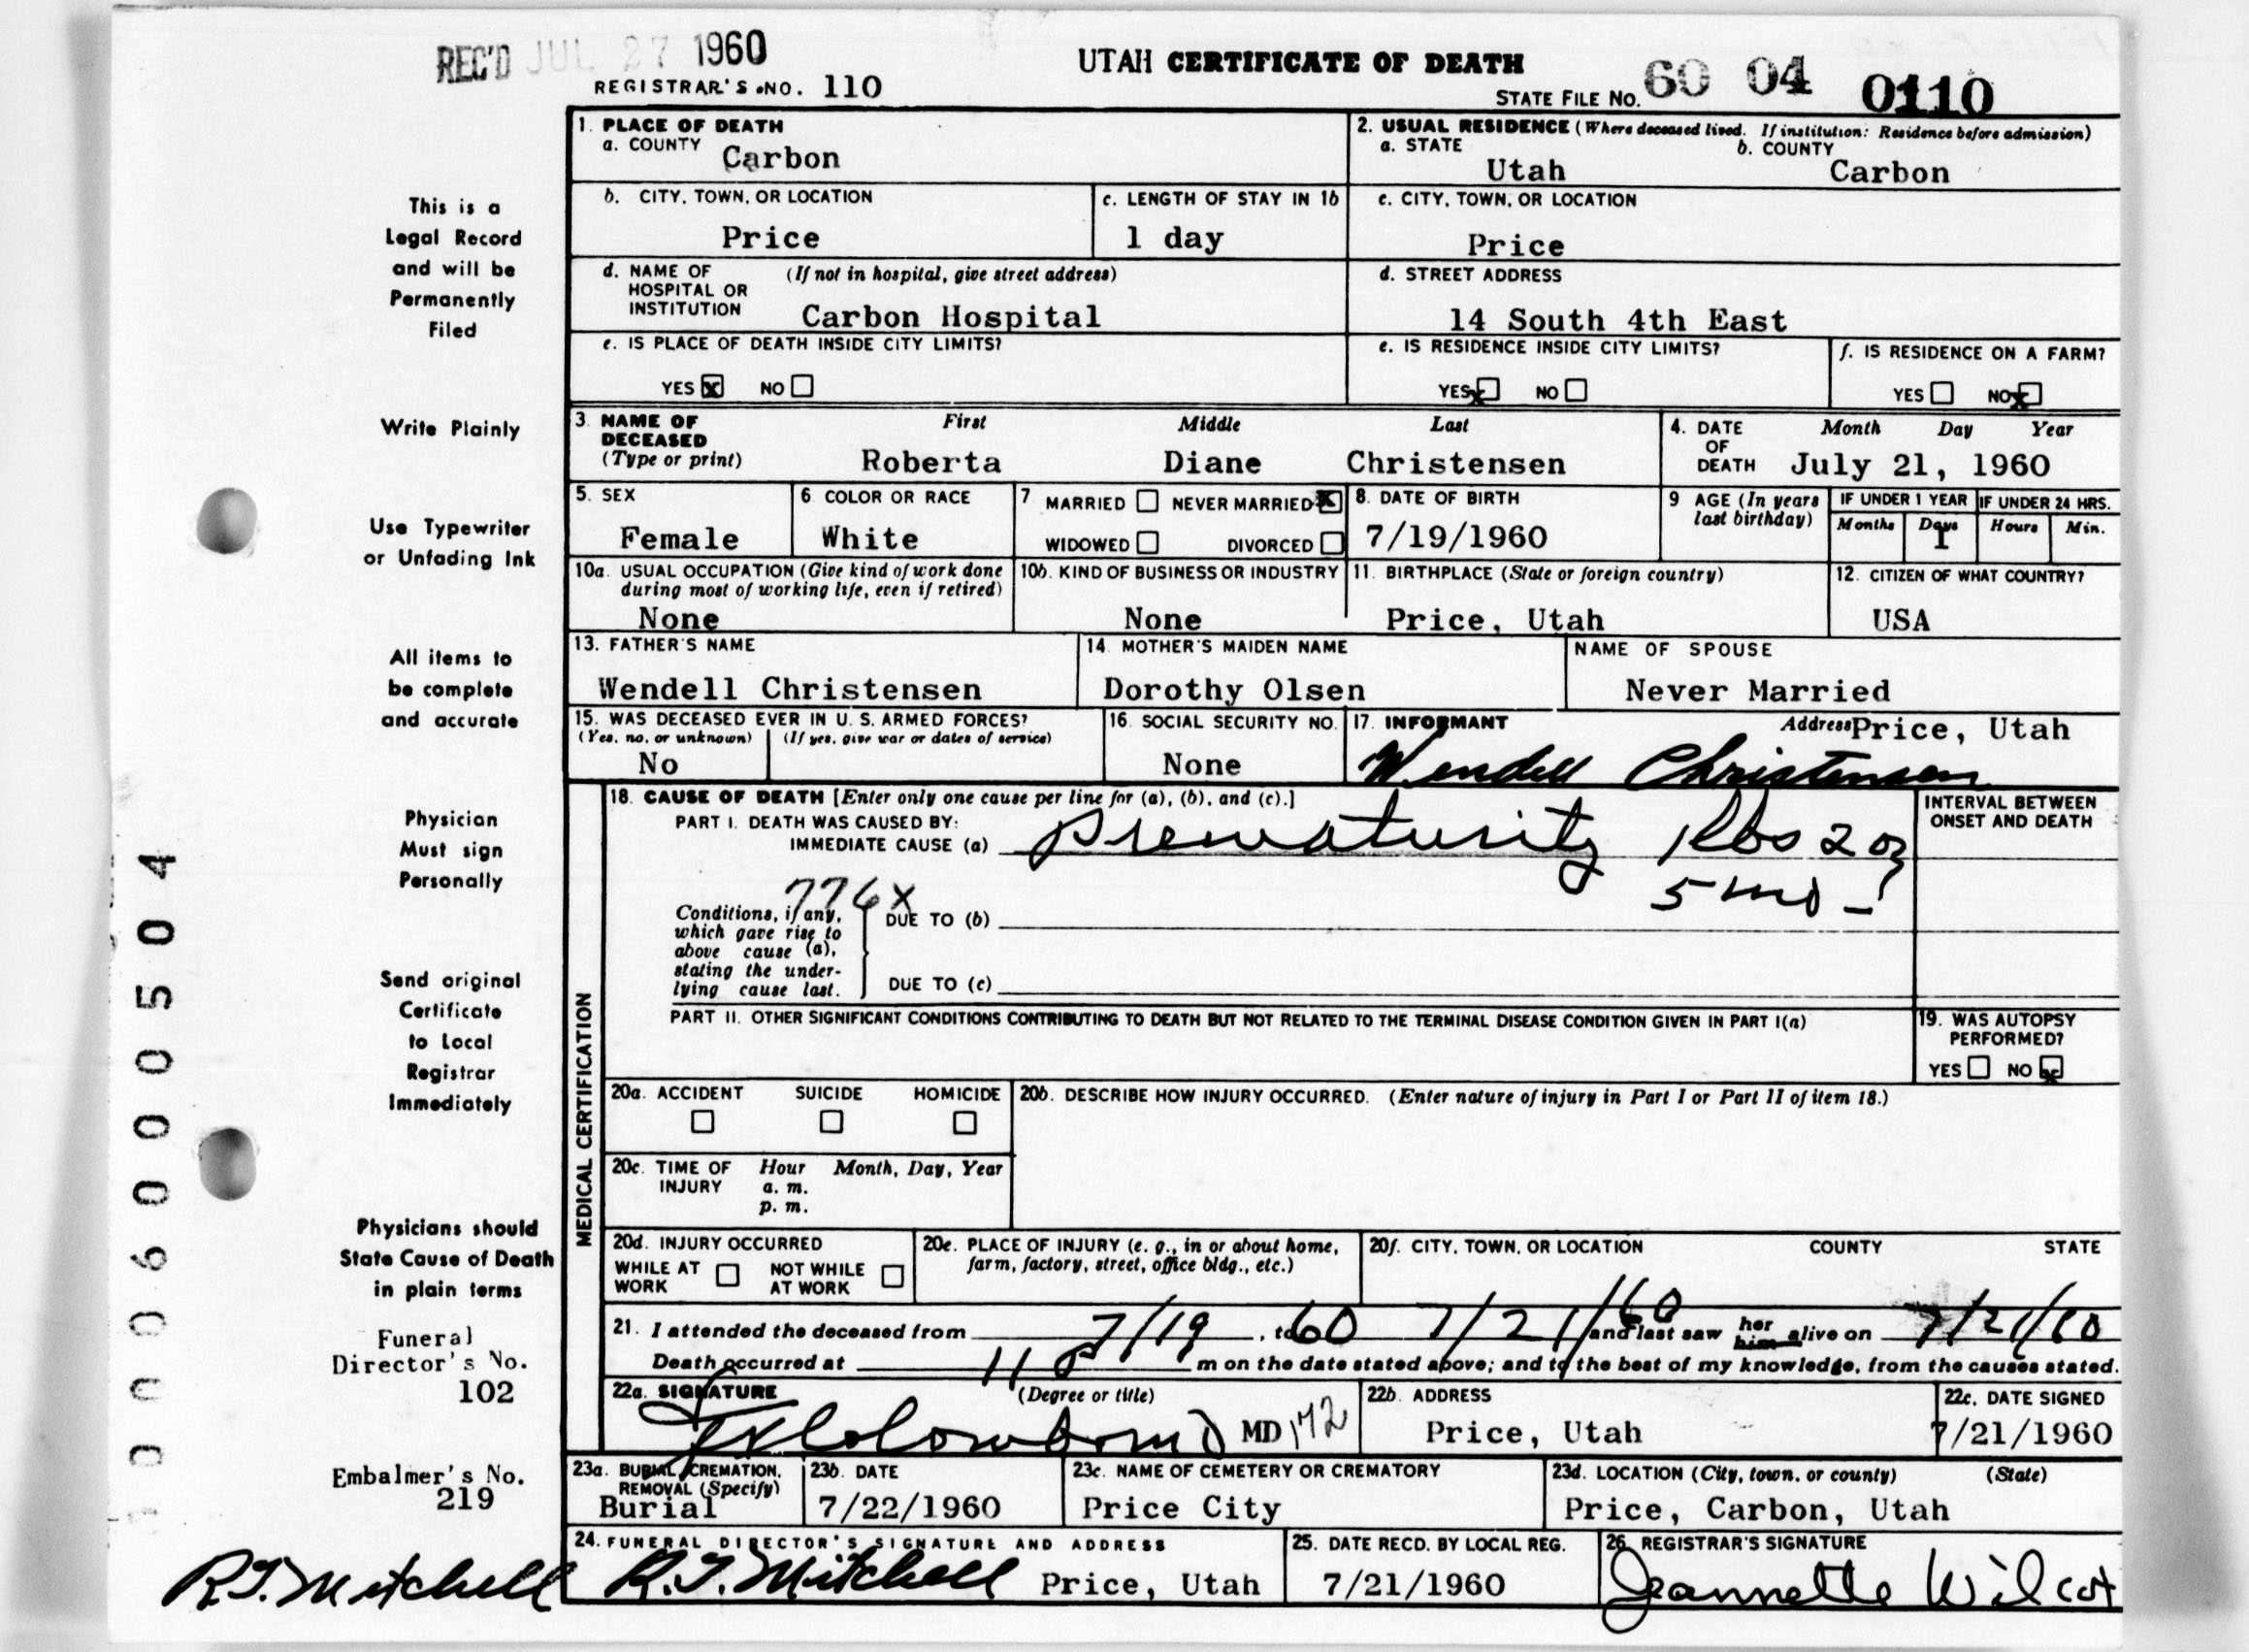 REC'D JUL 27 1960
REGISTRAR'S NO. 110
UTAH CERTIFICATE OF DEATH
STATE FILE NO. 60 04 0110
1. PLACE OF DEATH
a. COUNTY Carbon
2. USUAL RESIDENCE (Where deceased lived. If institution: Residence before admission)
a. STATE Utah b. COUNTY Carbon
b. CITY, TOWN, OR LOCATION Price
c. LENGTH OF STAY IN 1b 1 day
c. CITY, TOWN, OR LOCATION Price
d. NAME OF HOSPITAL OR INSTITUTION (If not in hospital, give street address) Carbon Hospital
d. STREET ADDRESS 14 South 4th East
e. IS PLACE OF DEATH INSIDE CITY LIMITS?
YES x NO
e. IS RESIDENCE INSIDE CITY LIMITS?
YES x NO
f. IS RESIDENCE ON A FARM?
YES NO x
3. NAME OF DECEASED (Type or print)
First Middle Last
Roberta Diane Christensen
4. DATE OF DEATH Month Day Year
July 21, 1960
5. SEX Female
6. COLOR OR RACE White
7 MARRIED NEVER MARRIED x
WIDOWED DIVORCED
8. DATE OF BIRTH 7/19/1960
9 AGE (In years last birthday)
IF UNDER 1 YEAR Months Days 1
IF UNDER 24 HRS. Hours Min.
10a. USUAL OCCUPATION (Give kind of work done during most of working life, even if retired)
None
10b. KIND OF BUSINESS OR INDUSTRY
None
11. BIRTHPLACE (State or foreign country)
Price, Utah
12. CITIZEN OF WHAT COUNTRY?
USA
13. FATHER'S NAME
Wendell Christensen
14. MOTHER'S MAIDEN NAME
Dorothy Olsen
NAME OF SPOUSE
Never Married
15. WAS DECEASED EVER IN U. S. ARMED FORCES?
(Yes, no, or unknown) (If yes, give war or dates of service)
No
16. SOCIAL SECURITY NO.
None
17. INFORMANT Address Price, Utah
Wendell Christensen
MEDICAL CERTIFICATION
18. CAUSE OF DEATH [Enter only one cause per line for (a), (b), and (c).]
INTERVAL BETWEEN ONSET AND DEATH
PART I. DEATH WAS CAUSED BY:
IMMEDIATE CAUSE (a) Prematurity 2 oz
5 mo -
776X
Conditions, if any, which gave rise to above cause (a), stating the underlying cause last.
DUE TO (b)
DUE TO (c)
PART II. OTHER SIGNIFICANT CONDITIONS CONTRIBUTING TO DEATH BUT NOT RELATED TO THE TERMINAL DISEASE CONDITION GIVEN IN PART I(a)
19. WAS AUTOPSY PERFORMED?
YES NO x
20a. ACCIDENT SUICIDE HOMICIDE
20b. DESCRIBE HOW INJURY OCCURRED. (Enter nature of injury in Part I or Part II of item 18.)
20c. TIME OF INJURY Hour Month, Day, Year
a. m.
p. m.
20d. INJURY OCCURRED
WHILE AT WORK NOT WHILE AT WORK
20e. PLACE OF INJURY (e. g., in or about home, farm, factory, street, office bldg., etc.)
20f. CITY, TOWN, OR LOCATION COUNTY STATE
21. I attended the deceased from 7/19, to 60 7/21/60 and last saw her him alive on 7/21/60
Death occurred at 11 P m on the date stated above; and to the best of my knowledge, from the causes stated.
22a. SIGNATURE (Degree or title)
MD 172
22b. ADDRESS
Price, Utah
22c. DATE SIGNED
7/21/1960
23a. BURIAL, CREMATION, REMOVAL (Specify)
Burial
23b. DATE
7/22/1960
23c. NAME OF CEMETERY OR CREMATORY
Price City
23d. LOCATION (City, town, or county) (State)
Price, Carbon, Utah
24. FUNERAL DIRECTOR'S SIGNATURE AND ADDRESS
R.J. Mitchell Price, Utah
25. DATE RECD. BY LOCAL REG.
7/21/1960
26. REGISTRAR'S SIGNATURE
Jeannette Wilcox
This is a
Legal Record
and will be
Permanently
Filed
Write Plainly
Use Typewriter
or Unfading Ink
All items to
be complete
and accurate
Physician
Must sign
Personally
Send original
Certificate
to Local
Registrar
Immediately
Physicians should
State Cause of Death
in plain terms
Funeral
Director's No.
102
Embalmer's No.
219
R.J. Mitchell